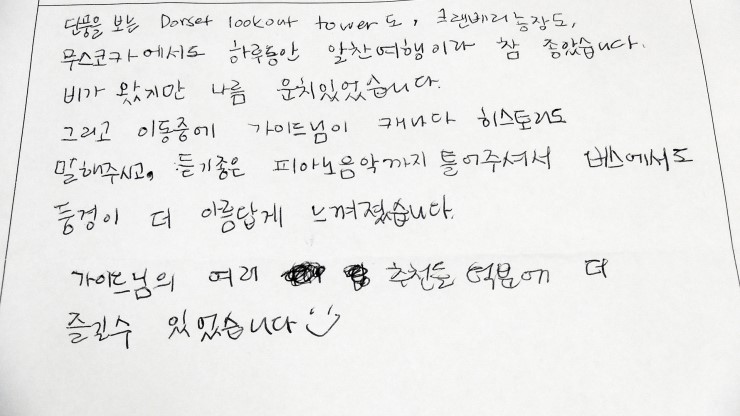 단풍을 보는 Dorset lookout tower도, 크랜베리농장도,
무스코카에서도 하루동안 알찬여행이라 참 좋았습니다.
비가 왔지만 나름 운치있었습니다.
그리고 이동중에 가이드님이 캐나다 히스토리도
말해주시고, 듣기좋은 피아노음악까지 틀어주셔서 버스에서도
풍경이 더 아름답게 느껴졌습니다.
가이드님의 여러 추천들 덕분에 더
즐길수 있었습니다